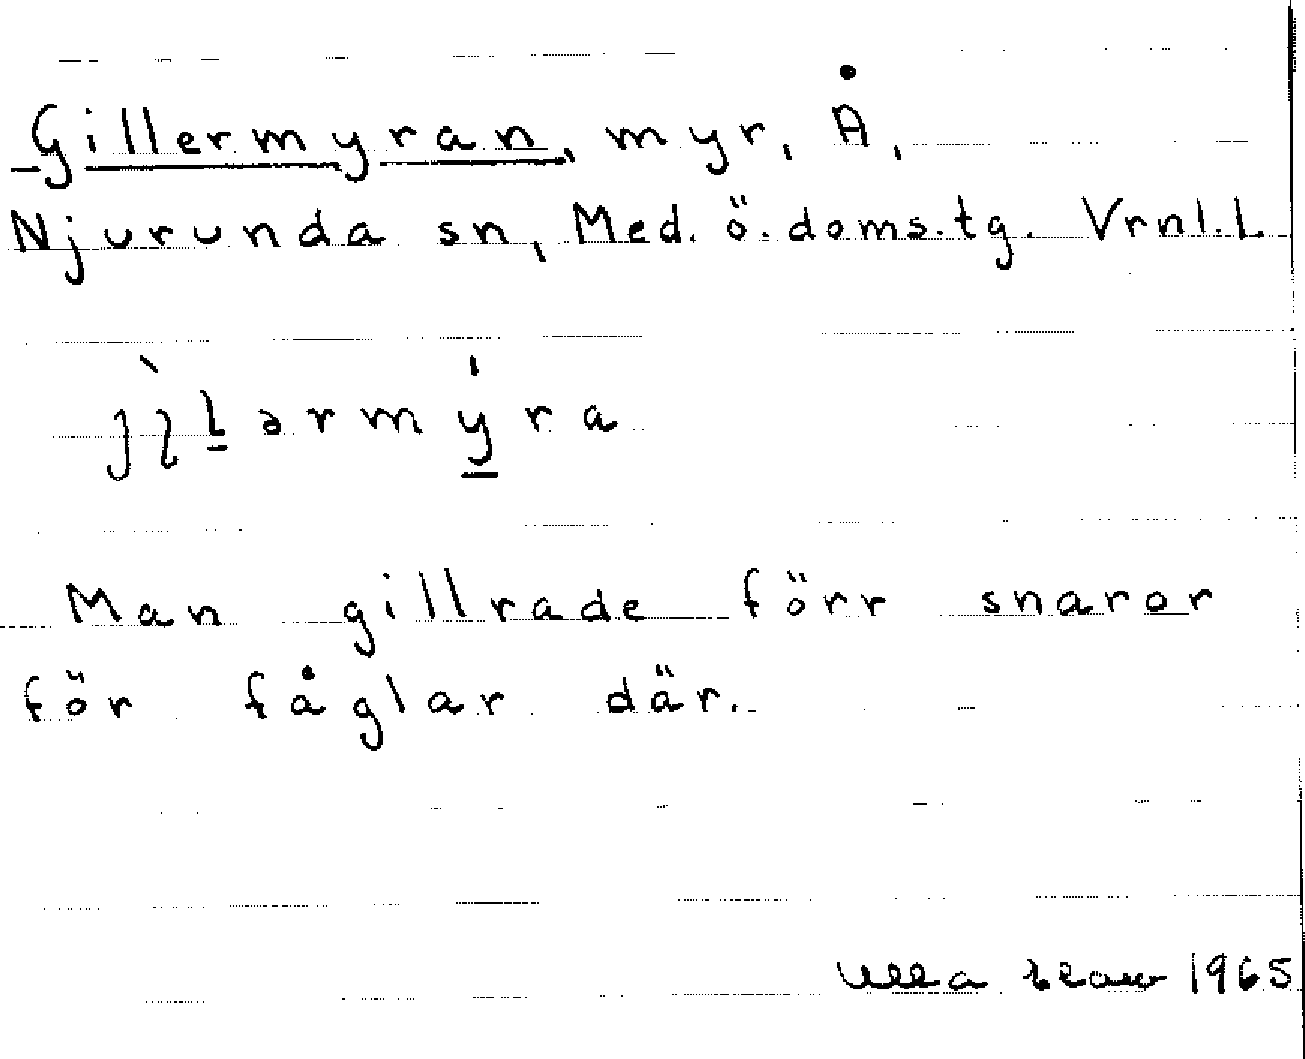 Gillermyran, myr, Å,
Njurunda sn, Med. ö. doms.tg. Vrnl.L.
Man gillrade förr snaror
för fåglar där.
Ulla 1965